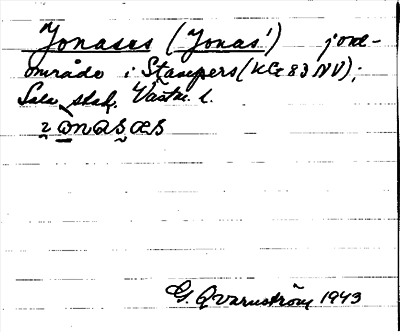 Jonases (Jonas') jord-
område i Stampers (KG 83 NV);
Sala stad, Västm. l.
G. Qvarnström 1943